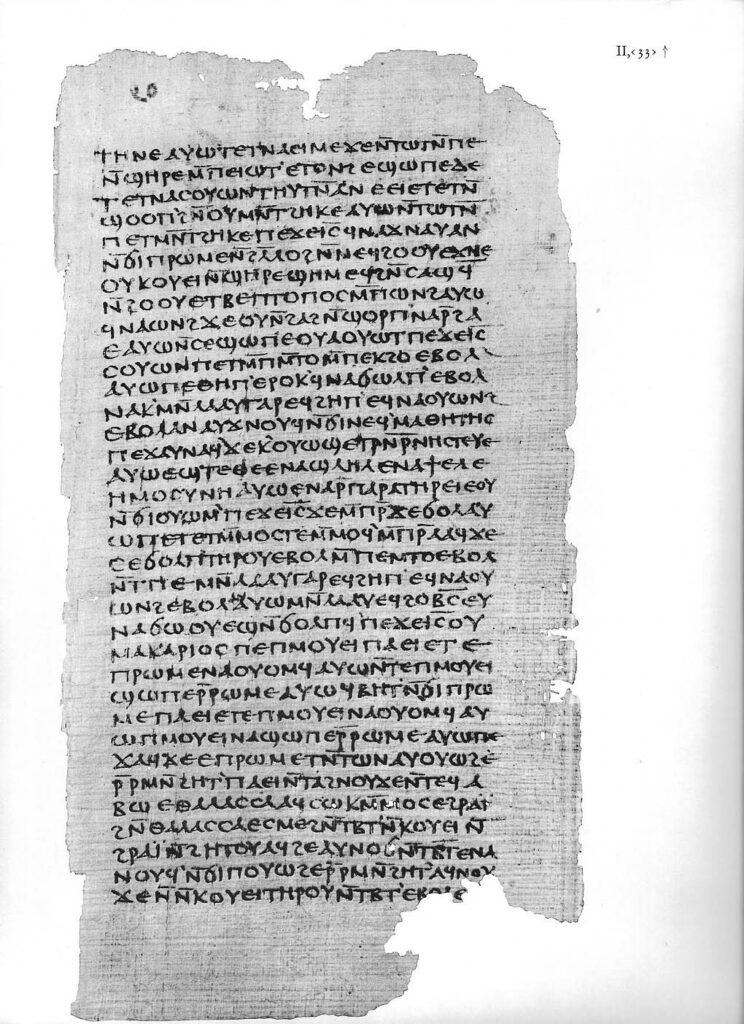 II,<33> ↑
ⲧⲏⲛⲉⲁⲩⲱⲧⲉⲧⲛⲁⲉⲓⲙⲉϫⲉⲛ̄ⲧⲱⲧⲛ̄ⲡⲉ
ⲛ̄ϣⲏⲣⲉⲙ̄ⲡⲉⲓⲱⲧ'ⲉⲧⲟⲛϩⲉϣⲱⲡⲉⲇⲉ
ⲧⲉⲧⲛⲁⲥⲟⲩⲱⲛⲧⲏⲩⲧⲛ̄ⲁⲛⲉⲉⲓⲉⲧⲉⲧⲛ̄
ϣⲟⲟⲡ'ϩⲛ̄ⲟⲩⲙⲛ̄ⲧϩⲏⲕⲉⲁⲩⲱⲛ̄ⲧⲱⲧⲛ̄
ⲡⲉⲧⲙⲛ̄ⲧϩⲏⲕⲉⲡⲉϫⲉⲓ̄ⲥ̄ϥⲛⲁϫⲛⲁⲩⲁⲛ
ⲛ̄ϭⲓⲡⲣⲱⲙⲉⲛ̄ϩⲗ̄ⲗⲟϩⲛ̄ⲛⲉϥϩⲟⲟⲩⲉϫⲛⲉ
ⲟⲩⲕⲟⲩⲉⲓⲛ̄ϣⲏⲣⲉϣⲏⲙⲉϥϩⲛ̄ⲥⲁϣϥ̄
ⲛ̄ϩⲟⲟⲩⲉⲧⲃⲉⲡⲧⲟⲡⲟⲥⲙ̄ⲡⲱⲛϩⲁⲩⲱ
ϥⲛⲁⲱⲛϩϫⲉⲟⲩⲛ̄ϩⲁϩⲛ̄ϣⲟⲣⲡ'ⲛⲁⲣ̄ϩⲁ
ⲉⲁⲩⲱⲛ̄ⲥⲉϣⲱⲡⲉⲟⲩⲁⲟⲩⲱⲧⲡⲉϫⲉⲓ̄ⲥ̄
ⲥⲟⲩⲱⲛⲡⲉⲧⲙ̄ⲡⲙ̄ⲧⲟⲙ̄ⲡⲉⲕϩⲟⲉⲃⲟⲗ
ⲁⲩⲱⲡⲉⲑⲏⲡ'ⲉⲣⲟⲕϥⲛⲁϭⲱⲗⲡ'ⲉⲃⲟⲗ
ⲛⲁⲕⲙⲛ̄ⲗⲁⲁⲩⲅⲁⲣⲉϥϩⲏⲡ'ⲉϥⲛⲁⲟⲩⲱⲛϩ
ⲉⲃⲟⲗⲁⲛⲁⲩϫⲛⲟⲩϥⲛ̄ϭⲓⲛⲉϥ'ⲙⲁⲑⲏⲧⲏⲥ
ⲡⲉϫⲁⲩⲛⲁϥ'ϫⲉⲕⲟⲩⲱϣⲉⲧⲣⲛ̄ⲣ̄ⲛⲏⲥⲧⲉⲩⲉ
ⲁⲩⲱⲉϣⲧⲉⲑⲉⲉⲛⲁϣⲗⲏⲗⲉⲛⲁϯⲉⲗⲉ
ⲏⲙⲟⲥⲩⲛⲏⲁⲩⲱⲉⲛⲁⲣ̄ⲡⲁⲣⲁⲧⲏⲣⲉⲓⲉⲟⲩ
ⲛ̄ϭⲓⲟⲩⲱⲙ'ⲡⲉϫⲉⲓ̄ⲥ̄ϫⲉⲙ̄ⲡⲣ̄ϫⲉϭⲟⲗⲁⲩ
ⲱⲡⲉⲧⲉⲧⲙ̄ⲙⲟⲥⲧⲉⲙ̄ⲙⲟϥ'ⲙ̄ⲡⲣ̄ⲁⲁϥϫⲉ
ⲥⲉϭⲟⲗⲡ'ⲧⲏⲣⲟⲩⲉⲃⲟⲗⲙ̄ⲡⲉⲙⲧⲟⲉⲃⲟⲗ
ⲛ̄ⲧⲡⲉⲙⲛ̄ⲗⲁⲁⲩⲅⲁⲣⲉϥϩⲏⲡ'ⲉϥⲛⲁⲟⲩ
ⲱⲛϩⲉⲃⲟⲗⲁⲛⲁⲩⲱⲙⲛ̄ⲗⲁⲁⲩⲉϥϩⲟⲃ̄ⲥ̄ⲉⲩ
ⲛⲁϭⲱⲟⲩⲉϣⲛ̄ϭⲟⲗⲡϥ'ⲡⲉϫⲉⲓ̄ⲥ̄ⲟⲩ
ⲙⲁⲕⲁⲣⲓⲟⲥⲡⲉⲡⲙⲟⲩⲉⲓⲡⲁⲉⲓⲉⲧⲉ
ⲡⲣⲱⲙⲉⲛⲁⲟⲩⲟⲙϥⲁⲩⲱⲛ̄ⲧⲉⲡⲙⲟⲩⲉⲓ
ϣⲱⲡⲉⲣ̄ⲣⲱⲙⲉⲁⲩⲱϥⲃⲏⲧ'ⲛ̄ϭⲓⲡⲣⲱ
ⲙⲉⲡⲁⲉⲓⲉⲧⲉⲡⲙⲟⲩⲉⲓⲛⲁⲟⲩⲟⲙϥⲁⲩ
ⲱⲡⲙⲟⲩⲉⲓⲛⲁϣⲱⲡⲉⲣ̄ⲣⲱⲙⲉⲁⲩⲱⲡⲉ
ϫⲁϥϫⲉⲉⲡⲣⲱⲙⲉⲧⲛ̄ⲧⲱⲛⲁⲩⲟⲩⲱϩⲉ
ⲣ̄ⲣⲙⲛ̄ϩⲏⲧ'ⲡⲁⲉⲓⲛ̄ⲧⲁϩⲛⲟⲩϫⲉⲛ̄ⲧⲉϥⲁ
ⲃⲱⲉⲑⲁⲗⲁⲥⲥⲁⲁϥⲥⲱⲕⲙ̄ⲙⲟⲥⲉϩⲣⲁⲓ̈
ϩⲛ̄ⲑⲁⲗⲁⲥⲥⲁⲉⲥⲙⲉϩⲛ̄ⲧⲃⲧ'ⲛ̄ⲕⲟⲩⲉⲓⲛ̄
ϩⲣⲁⲓ̈ⲛ̄ϩⲏⲧⲟⲩⲁϥϩⲉⲁⲩⲛⲟϭⲛ̄ⲧⲃⲧⲉⲛⲁ
ⲛⲟⲩϥ'ⲛ̄ϭⲓⲡⲟⲩⲱϩⲉⲣ̄ⲣⲙⲛ̄ϩⲏⲧ'ⲁϥⲛⲟⲩ
ϫⲉⲛ̄ⲛ̄ⲕⲟⲩⲉⲓⲧⲏⲣⲟⲩⲛ̄ⲧⲃⲧ'ⲉⲃⲟⲗⲉ